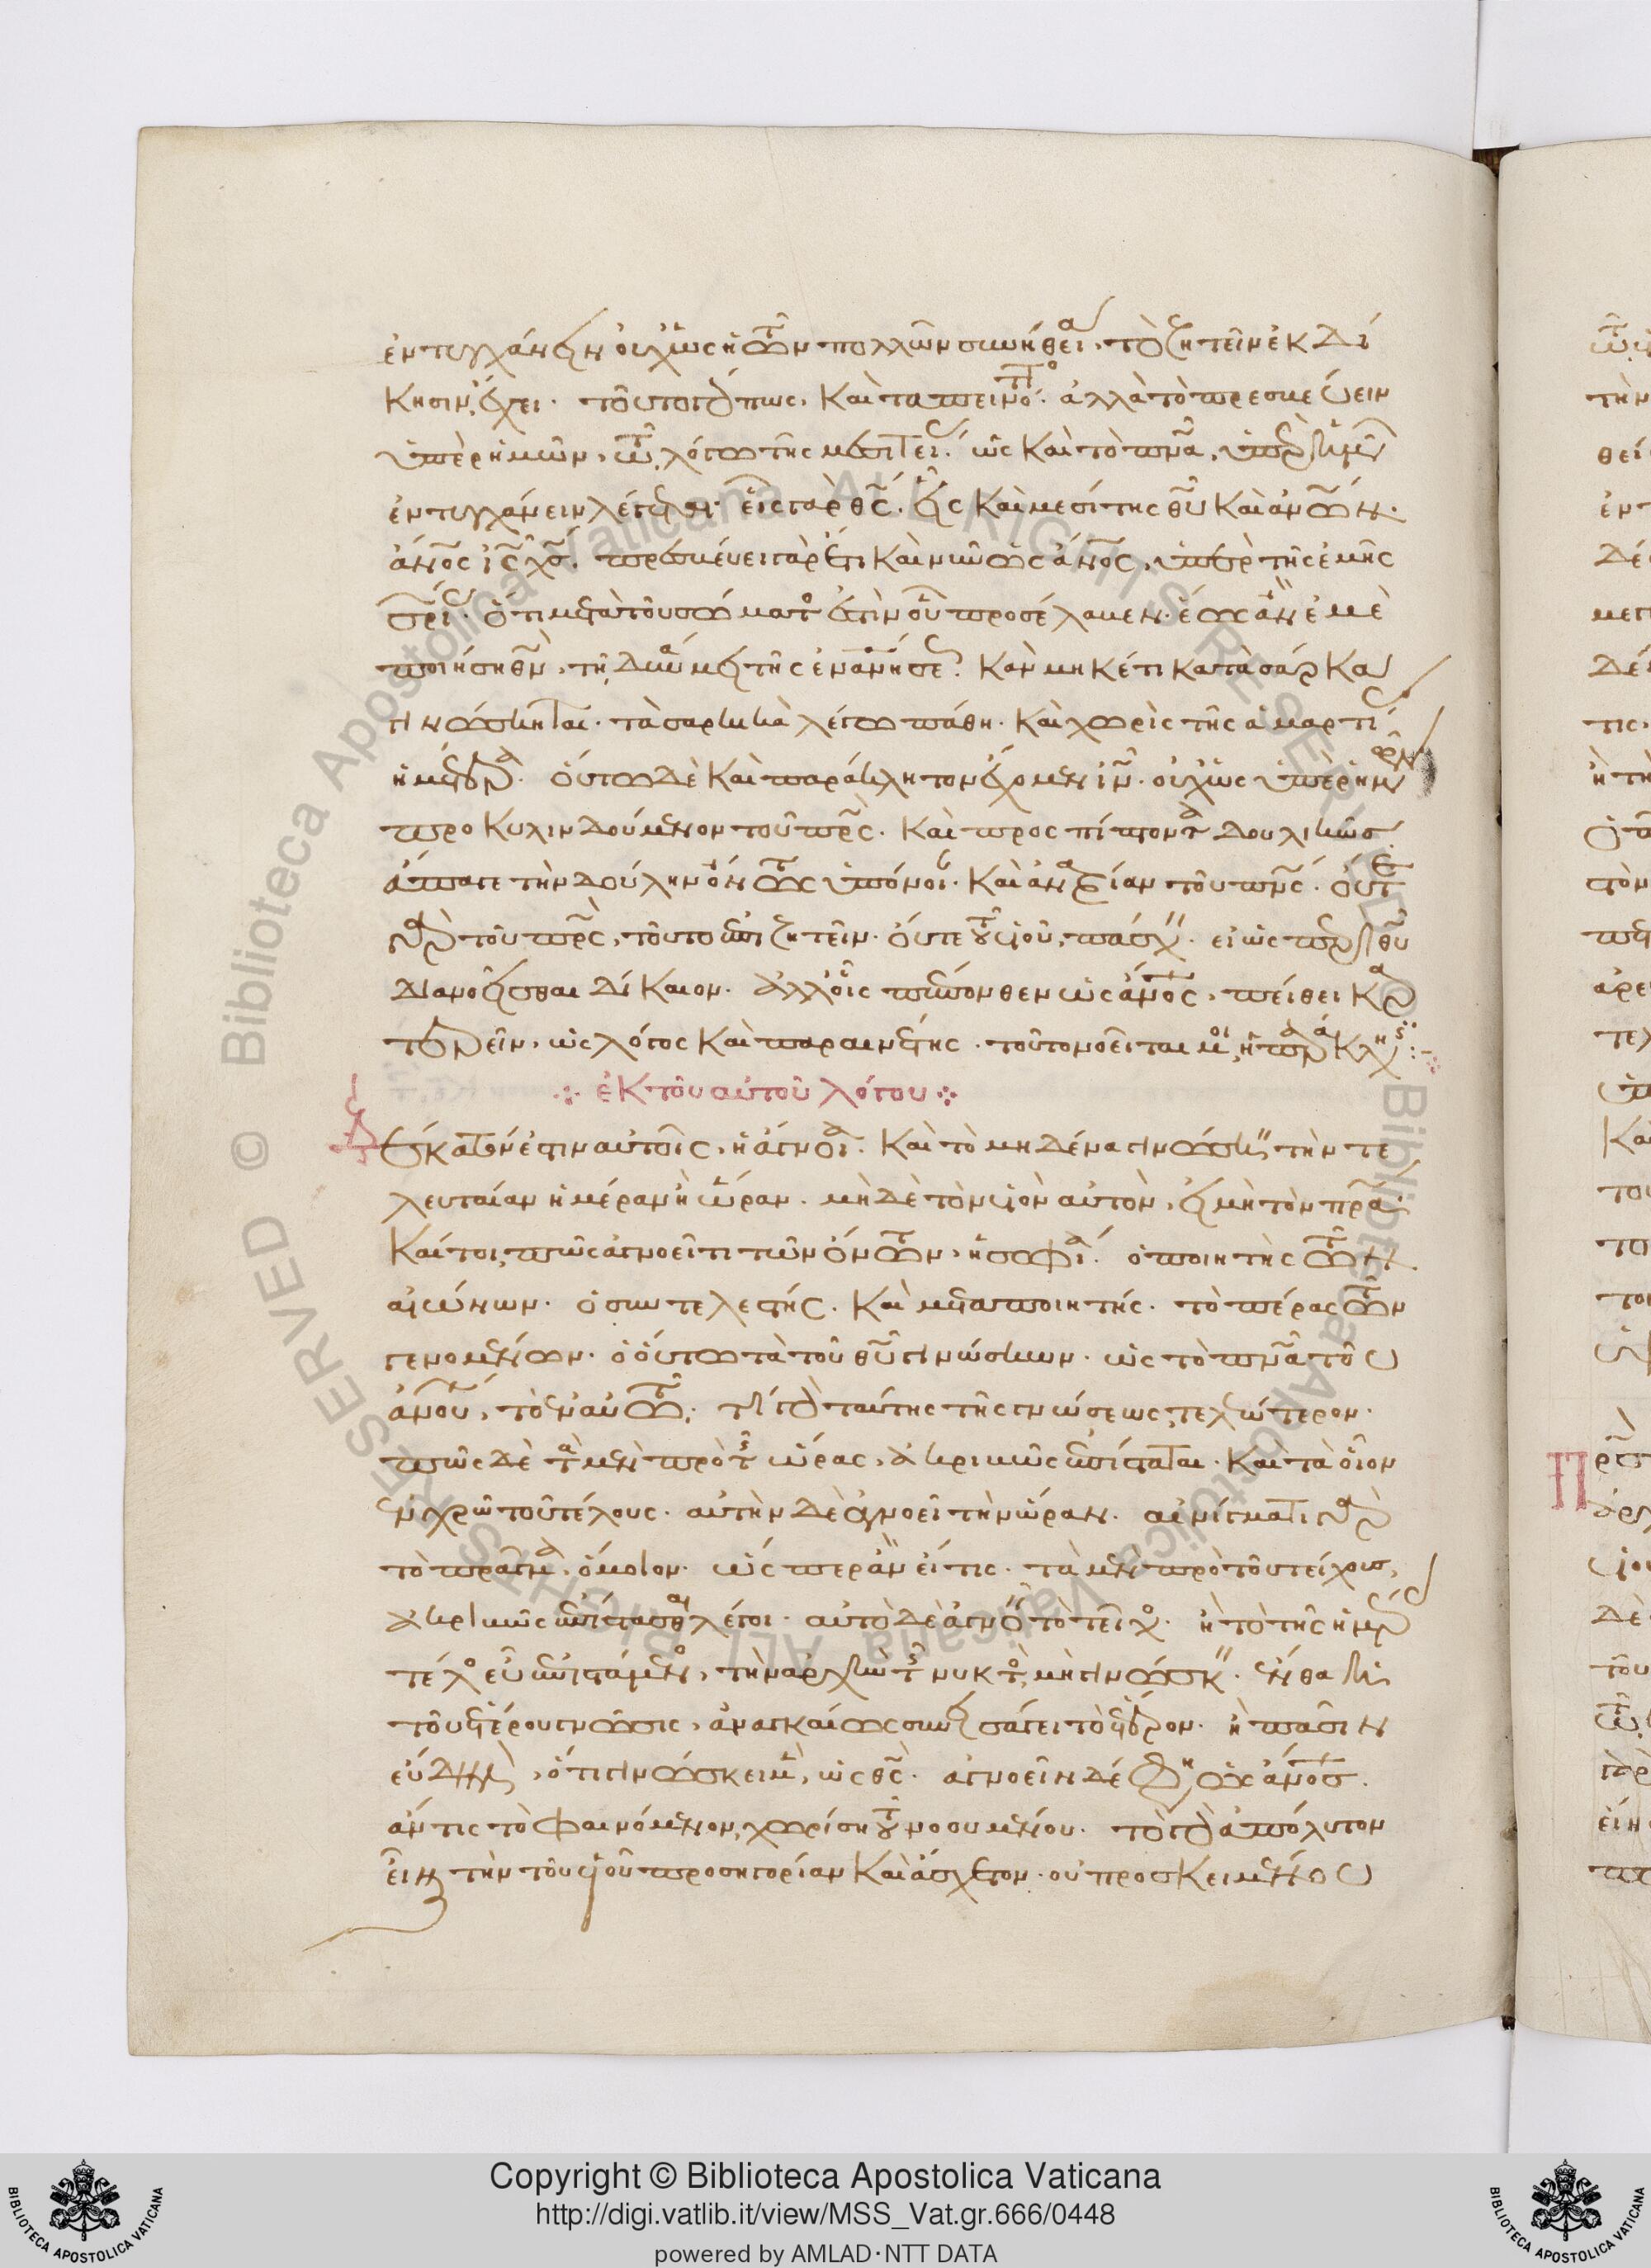 ἐντυγχάνειν οὐχ ὡς ἡ τῶν πολλῶν συνήθεια, τὸ ζητεῖν ἐκδί
κησιν ἔχει. τοῦτο γάρ πως, καὶ ταπεινότητος. ἀλλὰ τὸ πρεσβεύειν
ὑπὲρ ἡμῶν, τῷ λόγῳ τῆς μεσιτείας. ὡς καὶ τὸ πνα, ὑπὲρ ἡμῶν
ἐντυγχάνειν λέγεται. εἷς γὰρ θς. εἷς καὶ μεσίτης θυ καὶ ανων.
ανος ις χς. πρεσβεύει γὰρ ἔτι καὶ νῦν ὡς ανος, ὑπὲρ τῆς ἐμῆς
σρίας. ὅτι μετὰ τοῦ σώματός ἐστιν οὗ προσέλαβεν. ἕως ἂν ἐμὲ
ποιήσῃ θν, τῇ δυνάμει τῆς ἐνανθρωπήσεως. κἂν μηκέτι κατὰ σάρκα
γινώσκηται. τὰ σαρκικὰ λέγω πάθη. καὶ χωρὶς τῆς ἁμαρτίας
ἡμέτερα. οὕτω δὲ καὶ παράκλητον ἔχομεν ιν. οὐχ ὡς ὑπὲρ ἡμῶν
προκυλινδούμενον τοῦ πρς. καὶ προσπίπτοντα δουλικῶς.
ἄπαγε τὴν δούλην ὄντως ὑπόνοιαν. καὶ ἀναξίαν τοῦ πνς. οὔτε
γὰρ τοῦ πρς, τοῦτο ἐπιζητεῖν. οὔτε τοῦ υἱοῦ, πάσχειν. εἰ ὡς περὶ θυ
διανοεῖσθαι δίκαιον. ἀλλ' οἷς πέπονθεν ὡς ανος, πείθει καρ
τερεῖν, ὡς λόγος καὶ παραινέτης. τοῦτο νοεῖταί μοι, ἡ παράκλησις :-
ἐκ τοῦ αὐτοῦ λόγου
Δέκατόν ἐστιν αὐτοῖς, ἡ ἄγνοια. καὶ τὸ μηδένα γινώσκειν τὴν τε
λευταίαν ἡμέραν ἢ ὥραν. μηδὲ τὸν υἱὸν αὐτὸν, εἰ μὴ τὸν πρα.
καίτοι, πῶς ἀγνοεῖ τι τῶν ὄντων, ἡ σοφία. ὁ ποιητὴς τῶν
αἰώνων. ὁ συντελεστής. καὶ μεταποιητής. τὸ πέρας τῶν
γενομένων. ὁ οὕτω τὰ τοῦ θυ γινώσκων. ὡς τὸ πνα τοῦ
ανου, τὰ ἐν αὐτῷ. τί γὰρ ταύτης τῆς γνώσεως, τελεώτερον.
πῶς δὲ τὰ μὲν πρὸ τῆς ὥρας, ἀκριβῶς ἐπίσταται. καὶ τὰ οἷον
ἐν χρῷ τοῦ τέλους. αὐτὴν δὲ ἀγνοεῖ τὴν ὥραν. αἰνίγματι γὰρ
τὸ πρᾶγμα, ὅμοιον. ὥσπερ ἂν εἴ τις. τὰ μὲν πρὸ τοῦ τείχους,
ἀκριβῶς ἐπίστασθαι λέγοι. αὐτὸ δὲ ἀγνοεῖν τὸ τεῖχος. ἢ τὸ τῆς ἡμέρας
τέλος εὖ ἐπιστάμενος, τὴν ἀρχὴν τῆς νυκτὸς, μὴ γινώσκειν. ἔνθα ἡ
τοῦ ἑτέρου γνῶσις, ἀναγκαίως συνεισάγει τὸ ἕτερον. ἢ πᾶσιν
εὔδηλον, ὅτι γινώσκει μὲν, ὡς θς. ἀγνοεῖν δέ φησιν ὡς ανος.
ἄν τις τὸ φαινόμενον, χωρίσῃ τοῦ νοουμένου. τὸ γὰρ ἀπόλυτον
εἶναι τὴν τοῦ υἱοῦ προσηγορίαν καὶ ἄσχετον. οὐ προσκειμένου
Copyright © Biblioteca Apostolica Vaticana
http://digi.vatlib.it/view/MSS_Vat.gr.666/0448
powered by AMLAD·NTT DATA